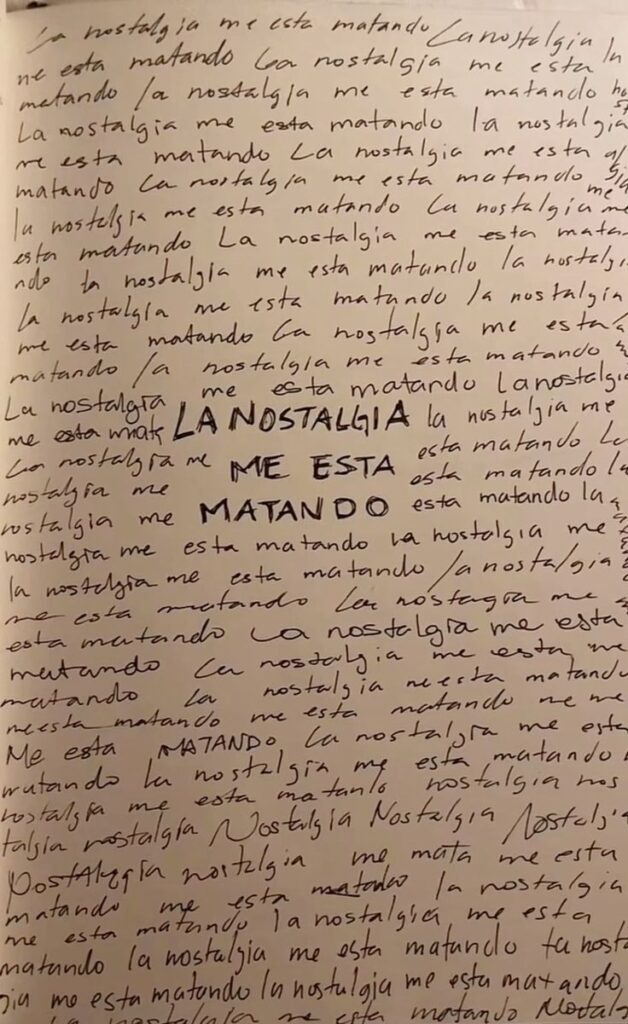 La nostalgia me esta matando La nostalgia
me esta matando La nostalgia me esta la
matando la nostalgia me esta matando
La nostalgia me esta matando la nostalgia
me esta matando La nostalgia me esta
matando La nostalgia me esta matando
la nostalgia me esta matando La nostalgia me
esta matando La nostalgia me esta mata-
ndo la nostalgia me esta matando la nostalgi
la nostalgia me esta matando la nostalgia
me esta matando La nostalgia me esta
matando la nostalgia me esta matando
La nostalgia me esta matando La nostalgia
me esta LA NOSTALGIA la nostalgia me
La nostalgia me ME ESTA esta matando La
nostalgia me esta matando la
nostalgia me MATANDO esta matando la
nostalgia me esta matando la nostalgia me
la nostalgia me esta matando la nostalgia
me esta matando La nostagia me
esta matando La nostalgia me esta
matando La nostalgia me esta me
matando La nostalgia me esta matando
me esta matando me esta matando me me
Me esta MATANDO La nostalgia me esta
matando la nostalgia me esta matando
nostalgia me esta matanlo nostalgia nos
talgia nostalgia Nostalgia Nostalgia Nostalgia
nostalgia me mata me esta
matando me esta matando la nostalgia
me esta matando la nostalgia me esta
matando la nostalgia me esta matando la nost
gia me esta matando la nostalgia me esta matando,
La nostalgia me esta matando Nostal